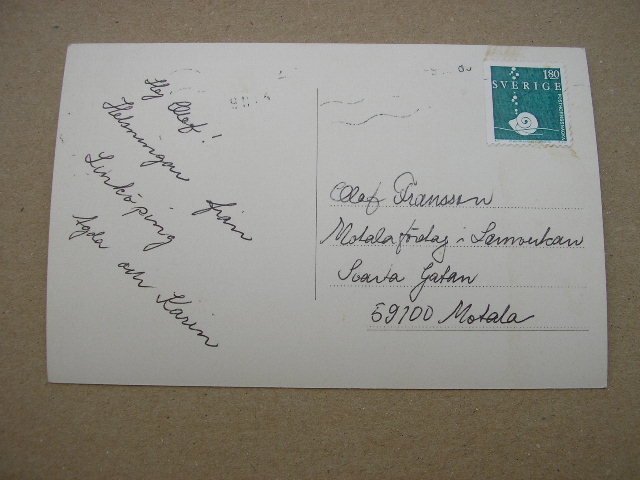 Hej Olof!
Hälsningar från
Linköping
Agda och Karin
1.80
SVERIGE
Olof Fransson
Motala företag i Samverkan
Svarta Gatan
59100 Motala